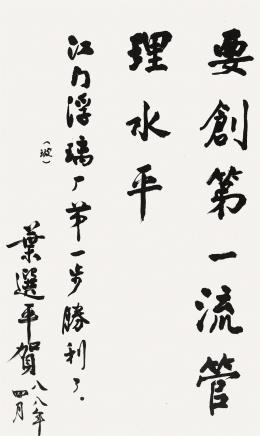 要創第一流管
理水平
江门浮璃厂第一步勝利了.
（玻）
葉選平賀
八八年
四月